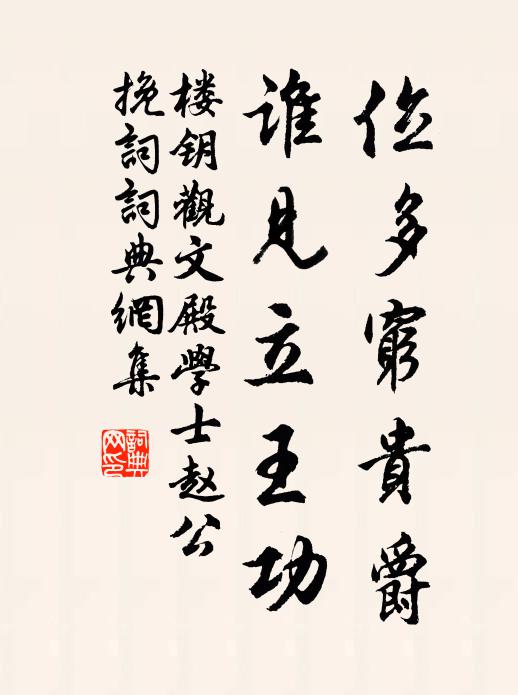 位多窮貴爵
誰見立王功
楼钥觀文殿學士赵公
挽詞詞典網集
詞典
网印